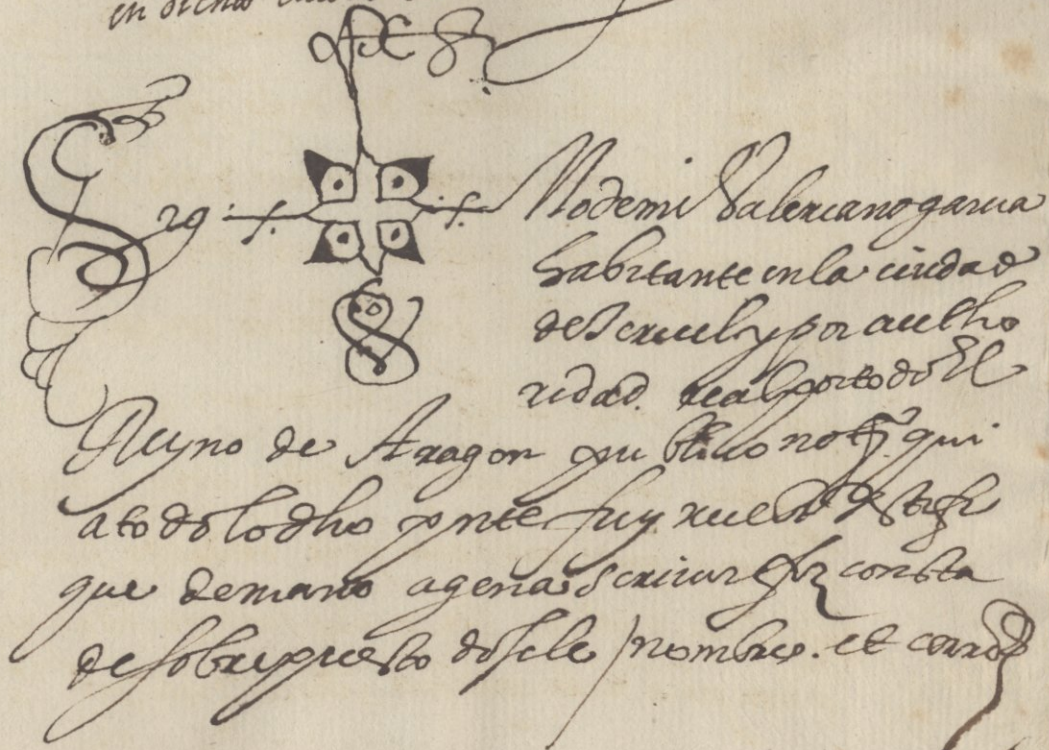 en dicha
Sig no de mi Valeriano garcia
habitante en la ciudad
de Teruel y por autho
ridad real por todo El
Reyno de Aragon publico notº qui
a todo lo dho pnte fuy
que de mano agena scriuir fiz consta
de sobrepuesto do se le / nombre. et cerre